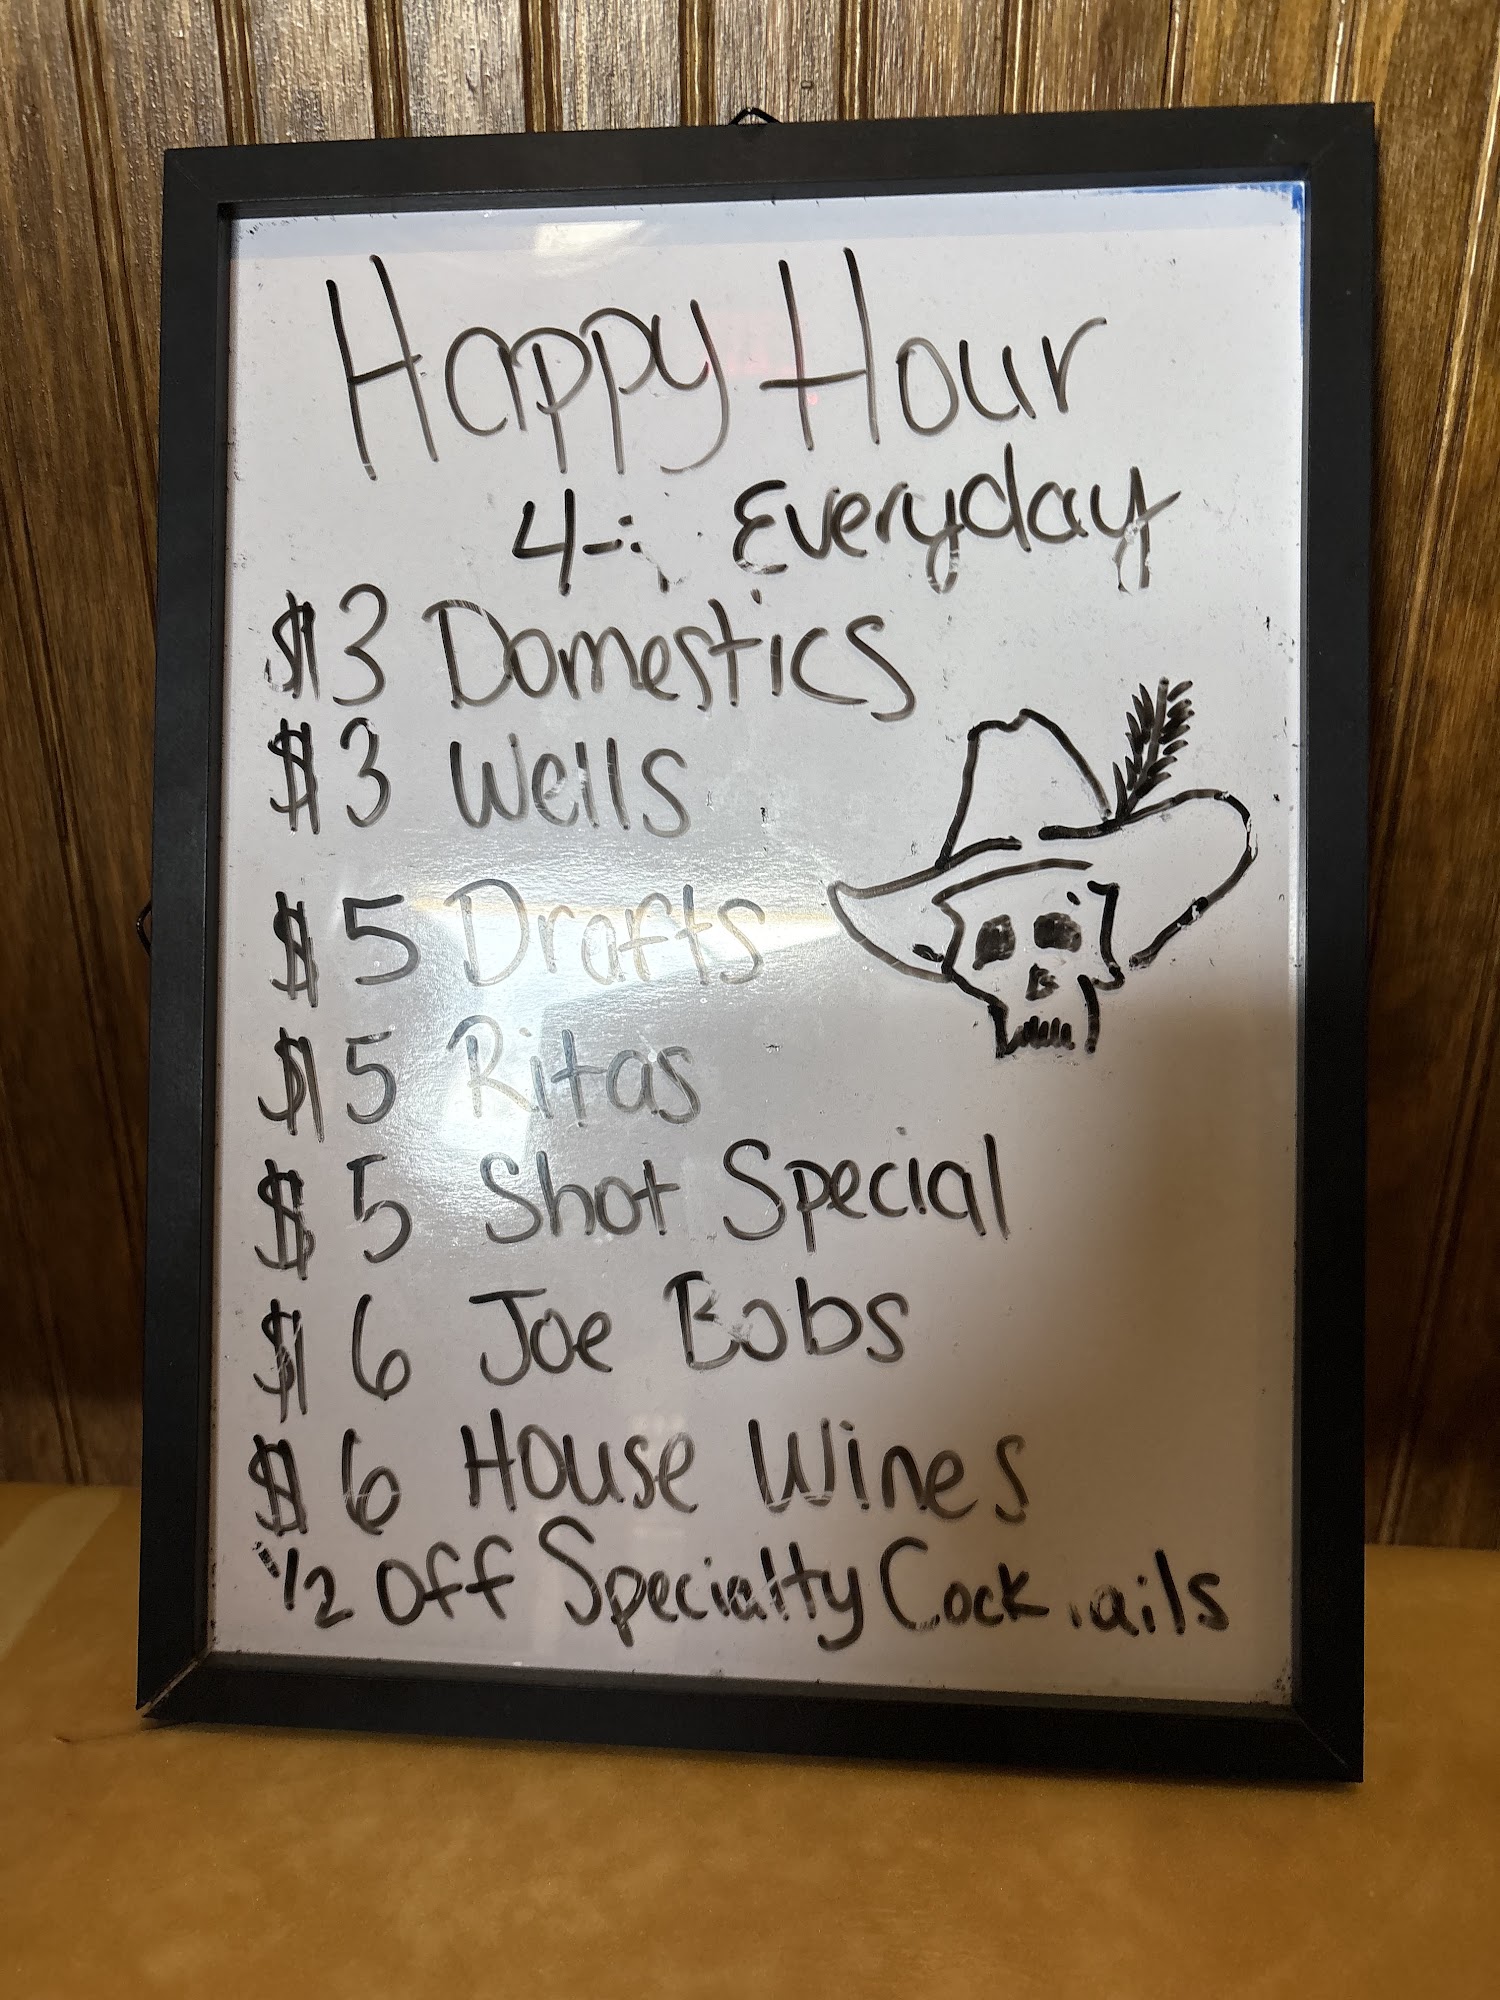 Happy Hour
4- Everyday
$3 Domestics
$3 Wells
$5 Drafts
$5 Ritas
$5 Shot Special
$6 Joe Bobs
$6 House Wines
1/2 Off Specialty Cocktails